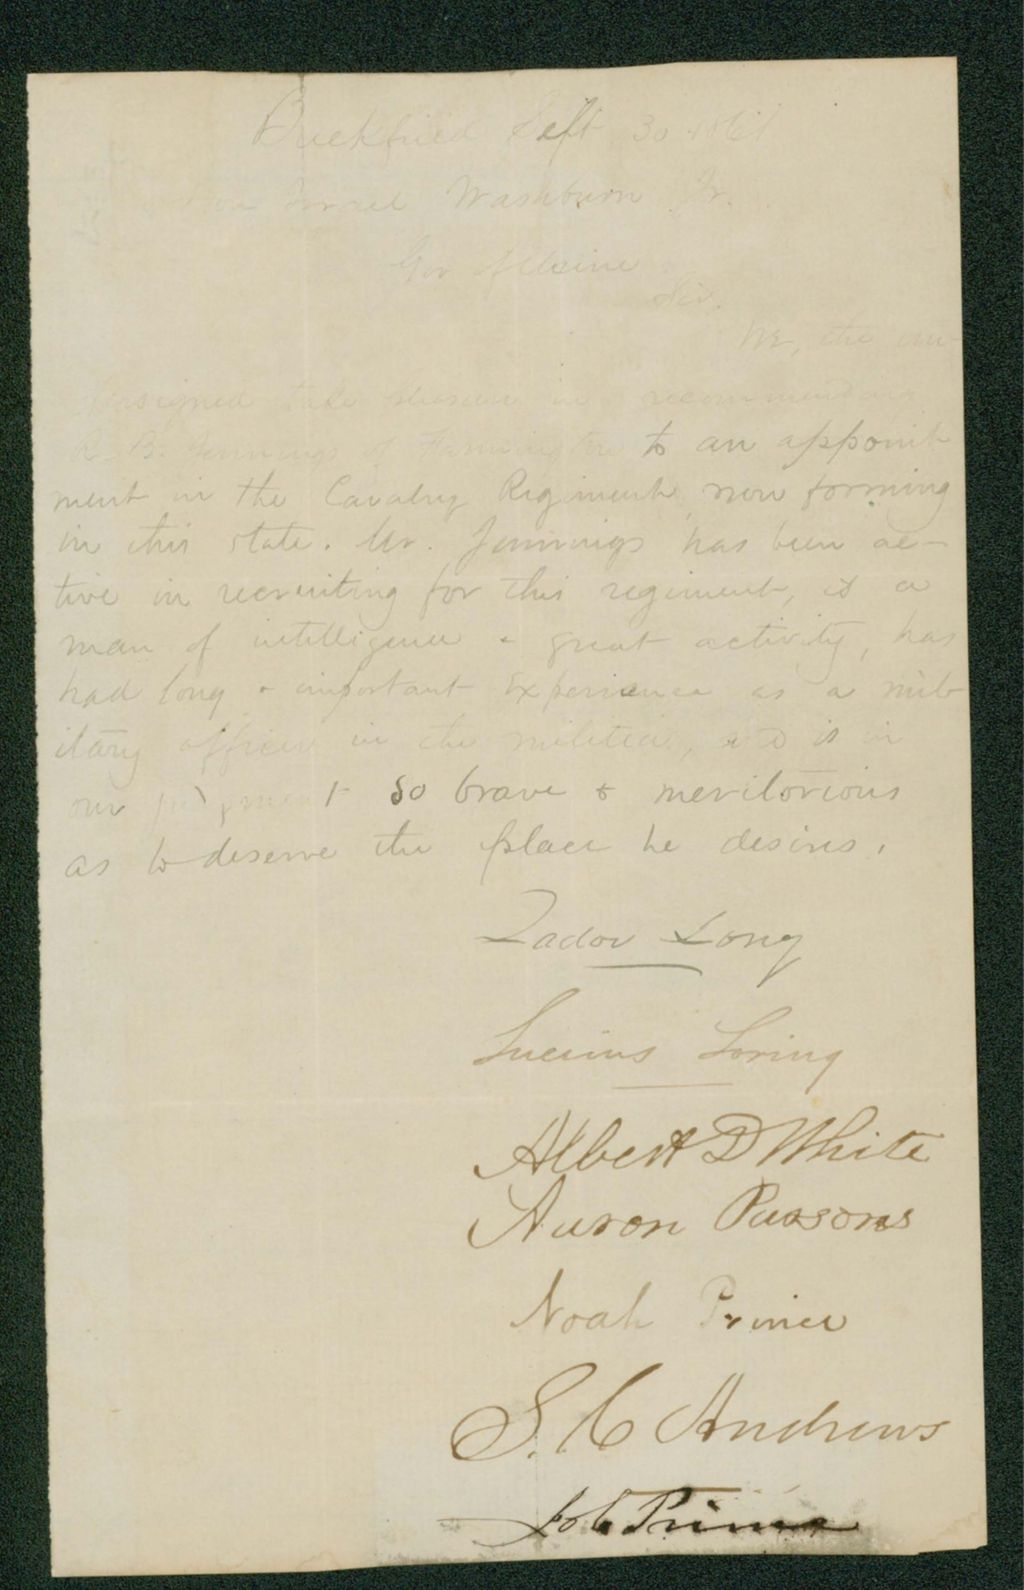 Buckfield Sept 30 1861
Hon Israel Washburn Jr.
Gov of Maine
Sir.
We, the un-
dersigned take pleasure in recommending
R. B. Jennings of Farmington to an appoint-
ment in the Cavalry Regiment now forming
in this state. Mr. Jennings has been ac-
tive in recruiting for this regiment, is a
man of intelligence & great activity, has
had long & important experience as a mil-
itary officer in the militia, and is in
our judgment so brave & meritorious
as to deserve the place he desires.
Zador Long
Lucius Loring
Albert D White
Aaron Parsons
Noah Prince
S. C Andrews
Job Prince